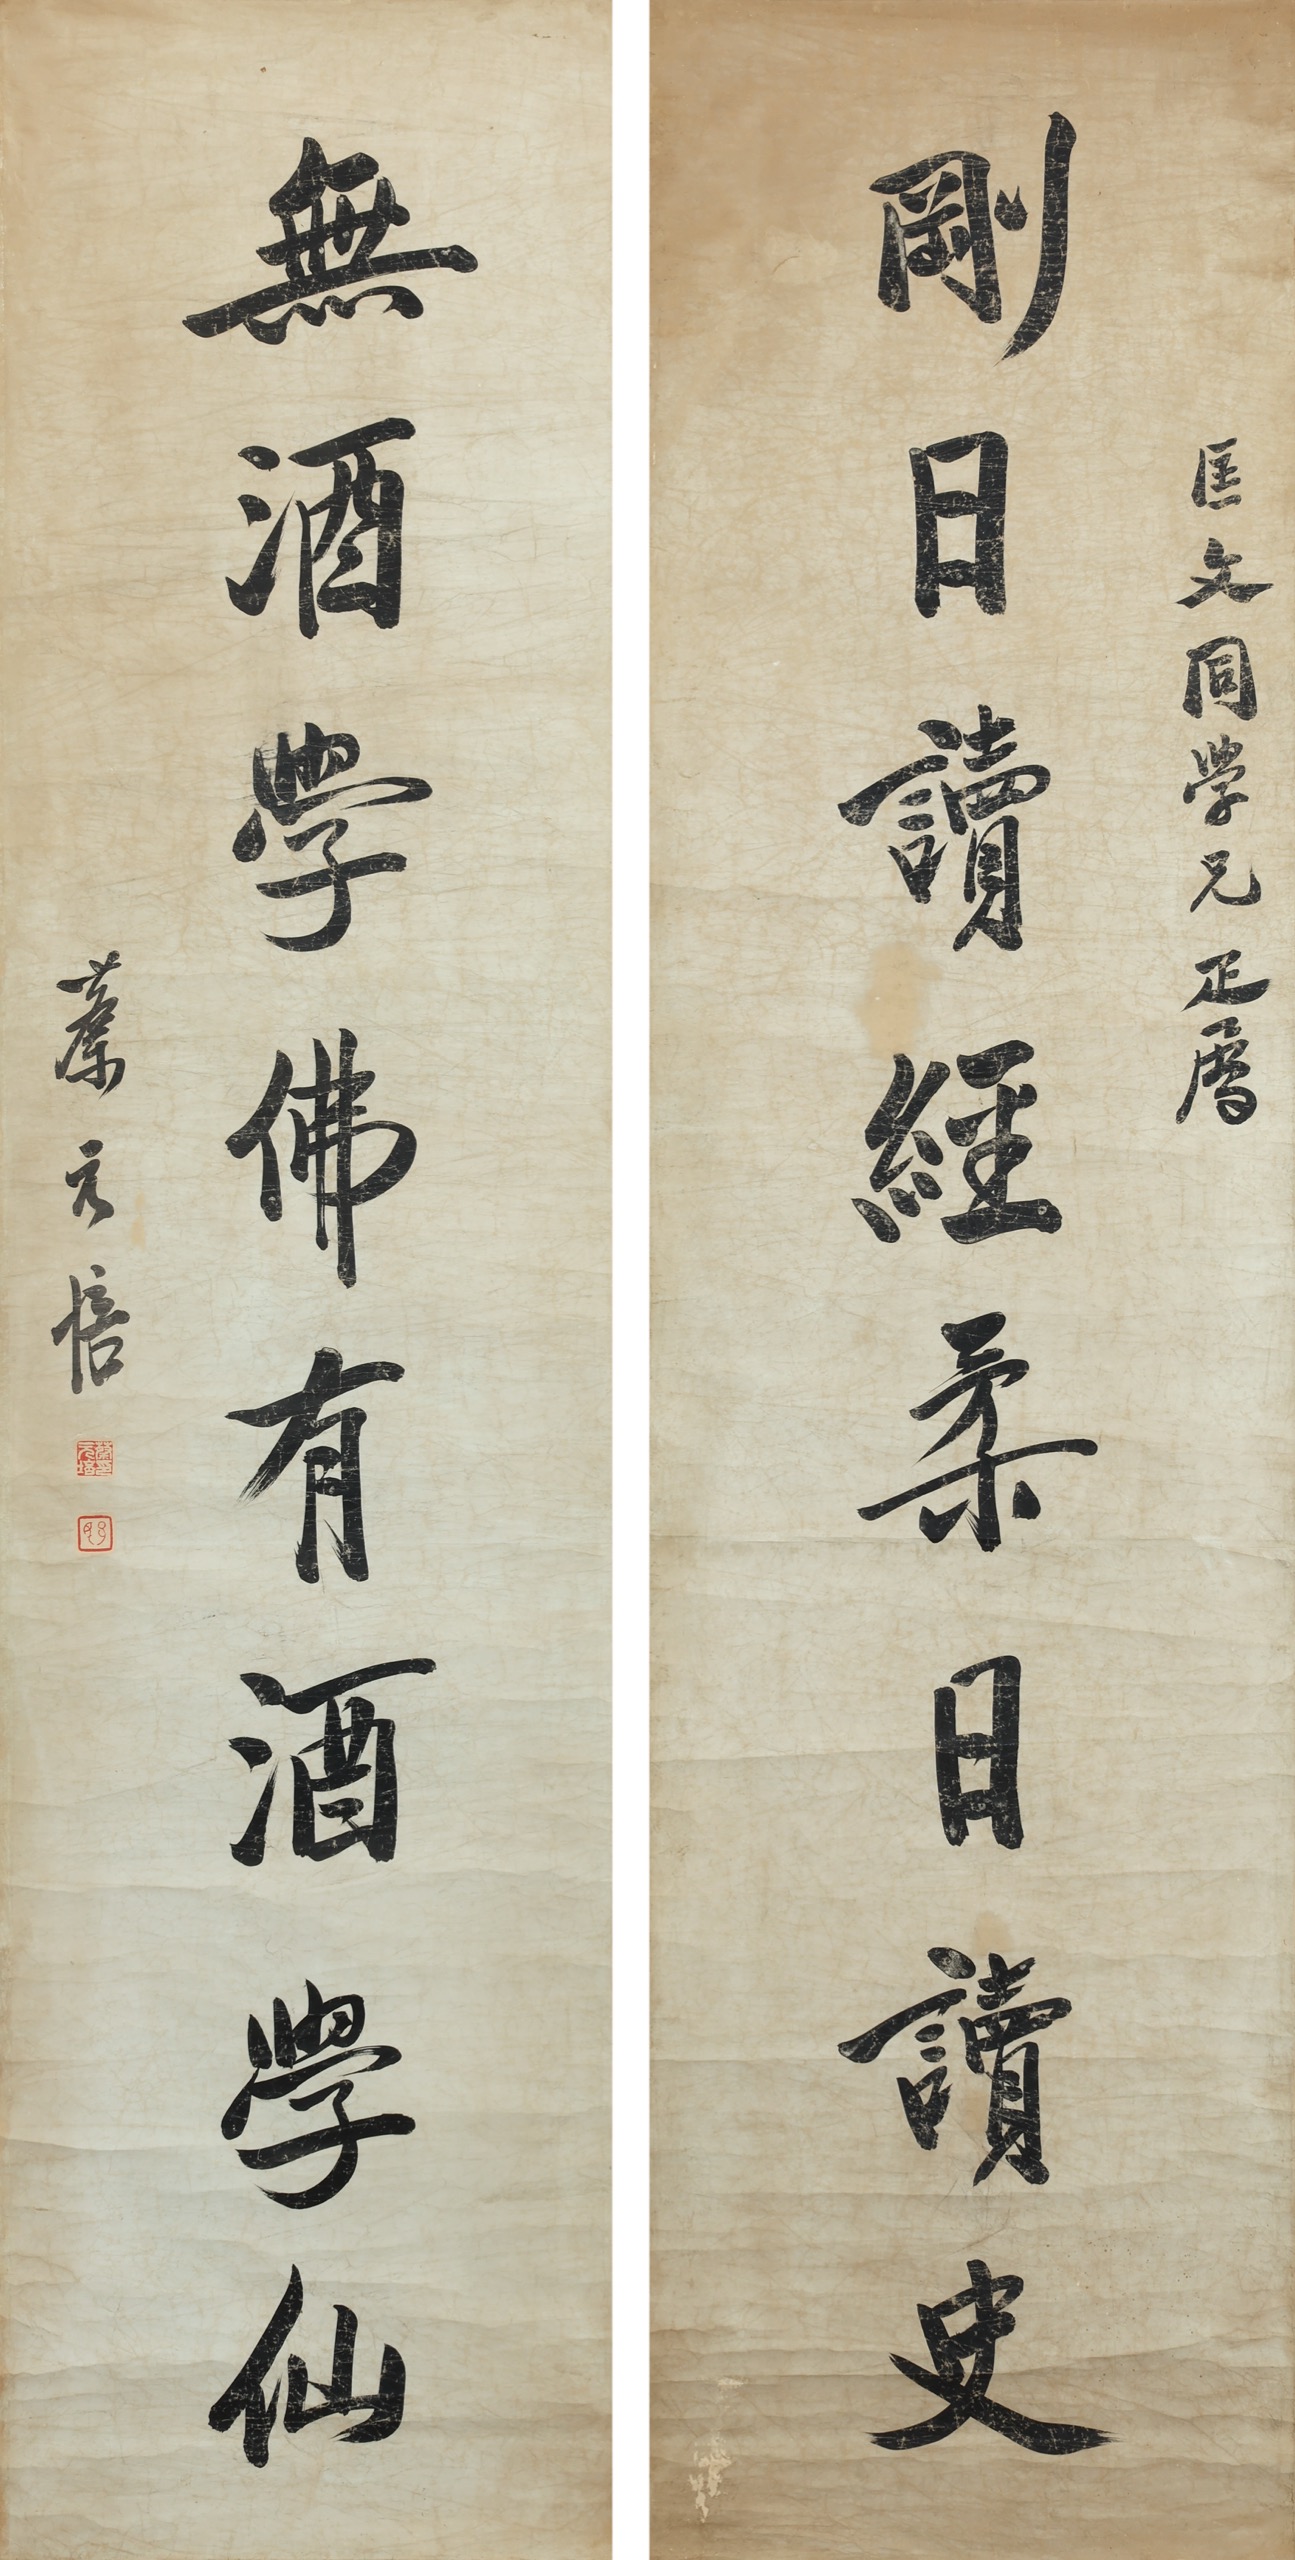 匡文同學兄正屬
剛日讀經柔日讀史
無酒學佛有酒學仙
蔡元培
蔡元培印